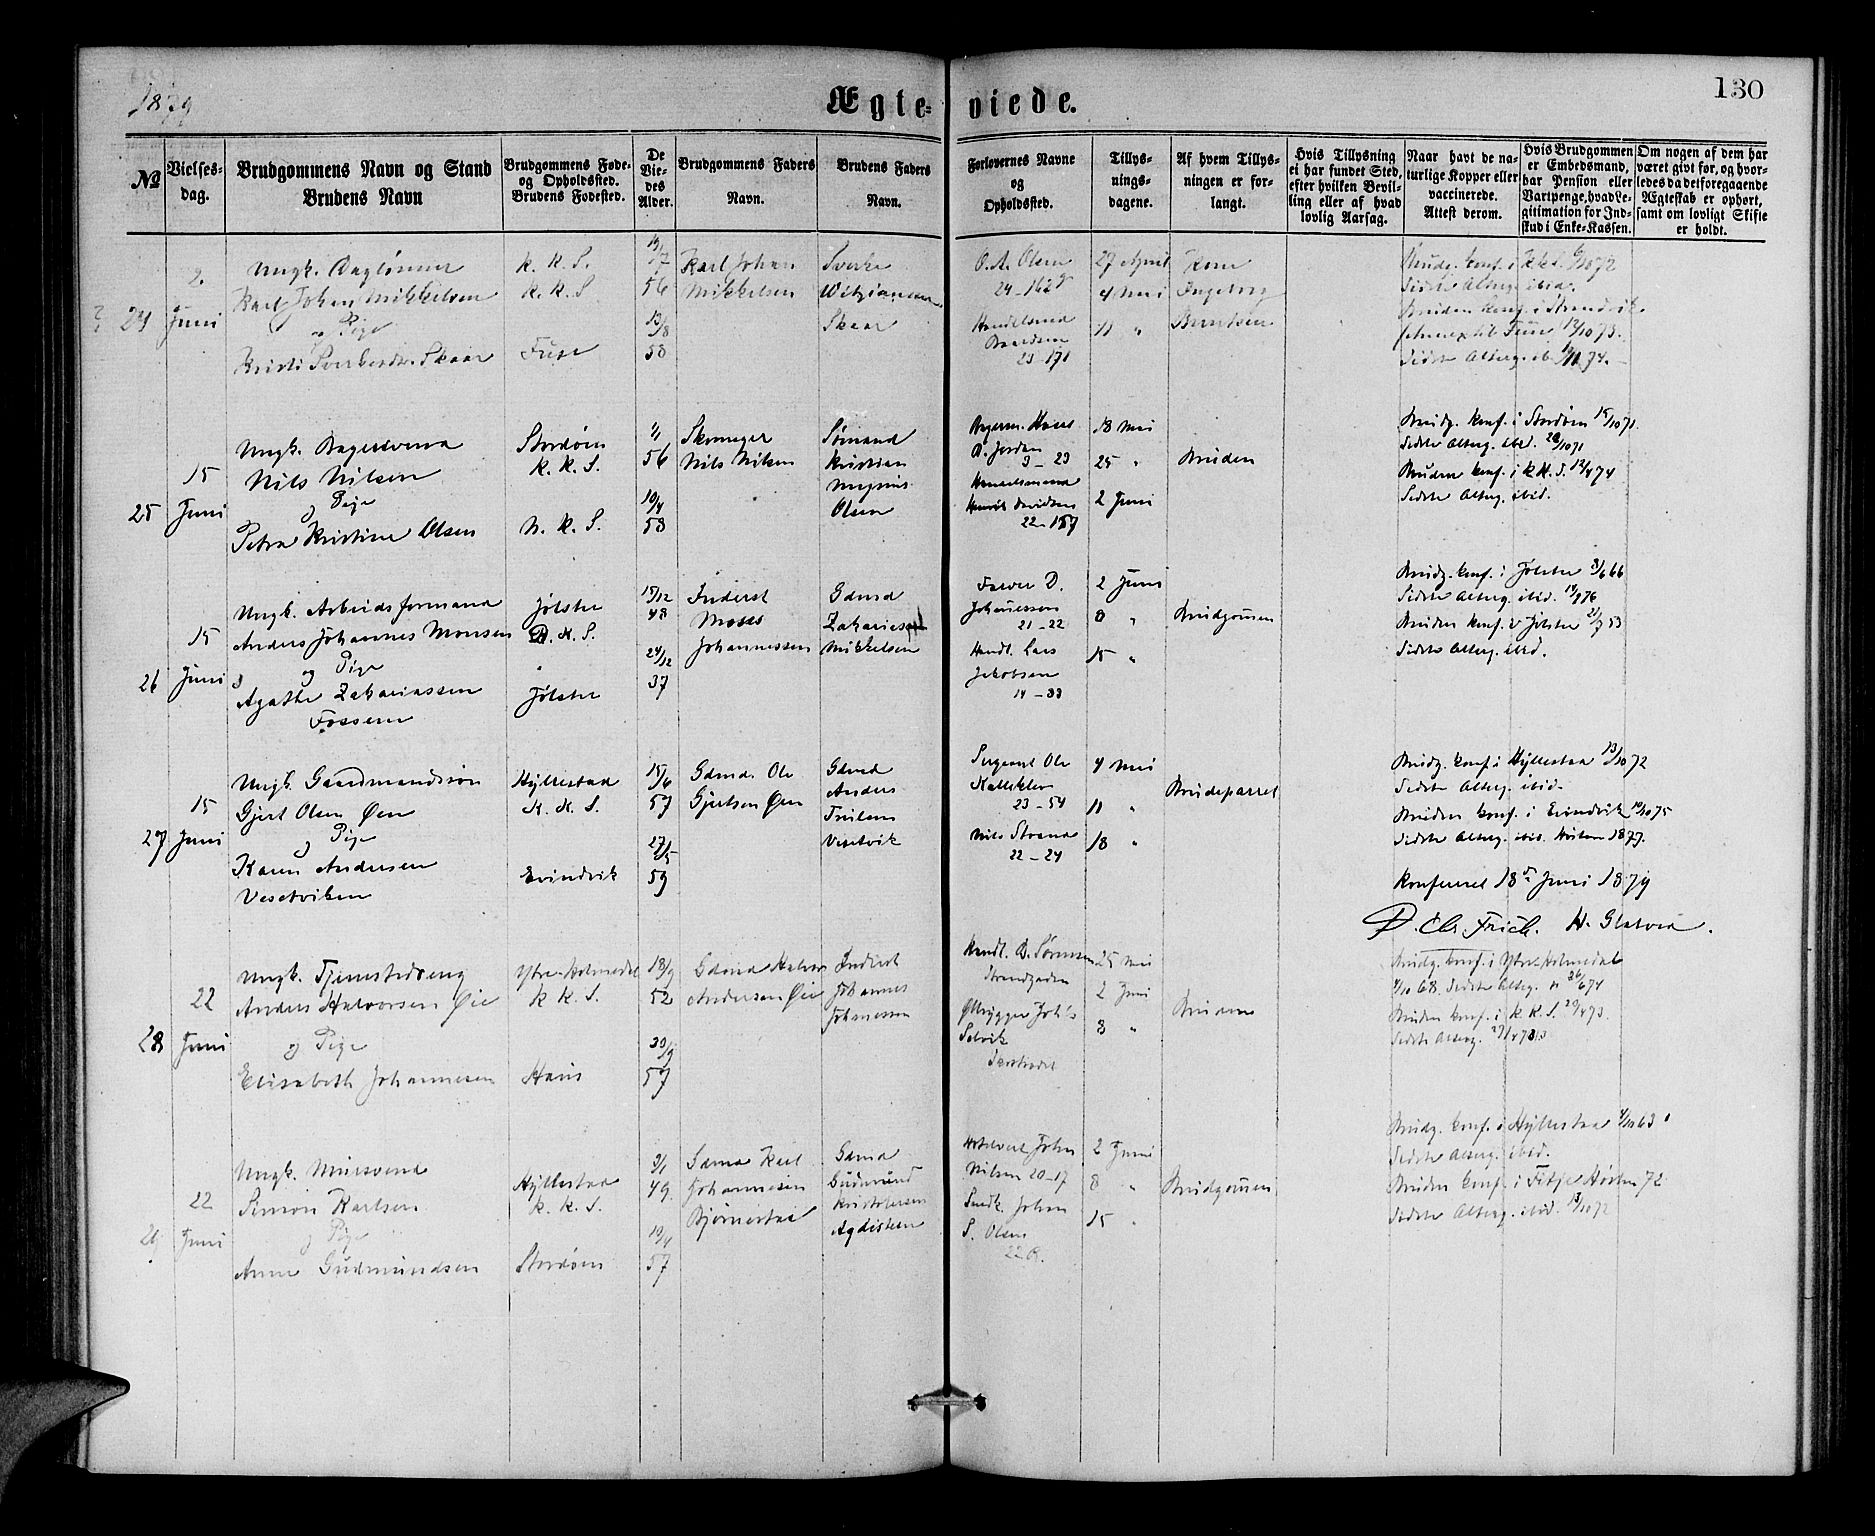 1879
Ægteviede.
130
No
Vielsesdag.
Brudgommens Navn og Stand
Brudens Navn
Brudgommens Føde- og Opholdssted.
Brudens Fødested.
De Viedes Alder.
Brudgommens Faders Navn.
Brudens Faders Navn.
Forlovernes Navne og Opholdssted.
Tillysningsdagene.
Af hvem Tillysningen er forlangt.
Hvis Tillysning ei har fundet Sted, efter hvilken Bevilling eller af hvad lovlig Aarsag.
Naar havt de naturlige Kopper eller vaccinerede. Attest derom.
Hvis Brudgommen er Embedsmand, har Pension eller Vartpenge, hvad Legitimation for Indskud i Enke-Kassen.
Om nogen af dem har været givt før, og hvorledes da detforegaaende Ægteskab er ophørt, samt om lovligt Skifte er holdt.
24
2. Juni
Ungk. Dagløn
Karl Johan Mikkelsen
og Pige
Kristi Skaar
K. K. S.
K. K. S.
Fuse
56
13/8
58
Karl Johan
Mikkelsen
Skaar
O. A. Olsen
23-171
27 April
4 Mai
11 "
Ingeborg
Berntsen
Brudg. konf. i K.K.S. 6/10 72
Sidste Altерg. ibid.
25
15 Juni
Ungk. Bagersvend
Nils Nilsen
og Pige
Petra Kristine Olsen
Stordøen
K. K. S.
N. K. S.
1/1
56
10/4
58
Skomager
Nils Nilsen
Sømand
Kristian
Magnus
Olsen
D. Jordan
3-23
Henrik Davidsen
22-157
18 Mai
25 "
2 Juni
Bruden
Brudg. konf. i Stordøen 15/10 71
Sidste Alterg. ibid. 28/10 71
Bruden konf. i K.K.S. 12/4 74
Sidste Alterg. ibid.
26
15 Juni
Ungk. Arbeidsformand
Anders Johannes Monsen
og Pige
Agathe Zakariassen
Fossem
Jølster
K. K. S.
Jølster
15/12
48
24/12
37
Inderst
Moses
Johannessen
Gdmd
Zakarias
Mikkelsen
Farver D.
Johannessen
21-22
Handl. Lars
Jakobsen
14-33
2 Juni
8 "
15 "
Brudgommen
Brudg. konf. i Jølster 3/6 66
Sidste Alterg. ibid.
Bruden konf. i Jølster 53
Sidste Alterg. ibid.
27
15 Juni
Ungk. Gaardmandssøn
Gjert Olsen Øen
og Pige
Karen Andersen
Vesetviken
Hyllestad
K. K. S.
Evindvik
15/6
57
27/5
59
Gdmd. Ole
Gjertsen Øen
Gdmd
Anders
Vesetvik
Sergeant Ole
Kalleklev
23-54
Nils Strand
22-24
4 Mai
11 "
18 "
Brudeparret
Brudg. konf. i Hyllestad 13/10 72
Sidste Alterg. ibid.
Bruden konf. i Evindvik 10/10 75
Sidste Alterg. ibid. Høsten 1877.
Konfereret 18de Juni 1879
D. Chr. Frich.
28
22 Juni
Ungk. Tjenestedreng
Anders Halvorsen Øie
og Pige
Elisabeth Johannesen
Ytre-Holmedal
K. K. S.
Haus
18/9
52
30/9
57
Gdmd Halvor
Andersen Øie
Inderst
Johannes
Johannesen
Handl. D. Sørensen
Strandgaden
Selvik
25 Mai
2 Juni
8 "
Bruden
Brudg. konf. i Ytre Holmedal
Bruden konf. i K. K. S. 20/4 73.
Sidste Alterg.
29
22 Juni
Ungk. Mursvend
Simon Karlsen
og Pige
Anne Gudmundsen
Hyllestad
K. K. S.
Stordøen
3/1
49.
10/4
57
Gdmd Karl
Johannesen
Bjørnestad
Gdmd
Gudmund
Kristofersen
Agdesteen
John
Nilsen 20-17
Snedk. Johan
S. Olsen
2 Juni
8 "
15 "
Brudgommen
Brudg. konf. i Hyllestad 4/10 63
Sidste Alterg. ibid.
Bruden konf. i Fitje Høsten 72
Sidste Alterg. ibid. 13/10 72